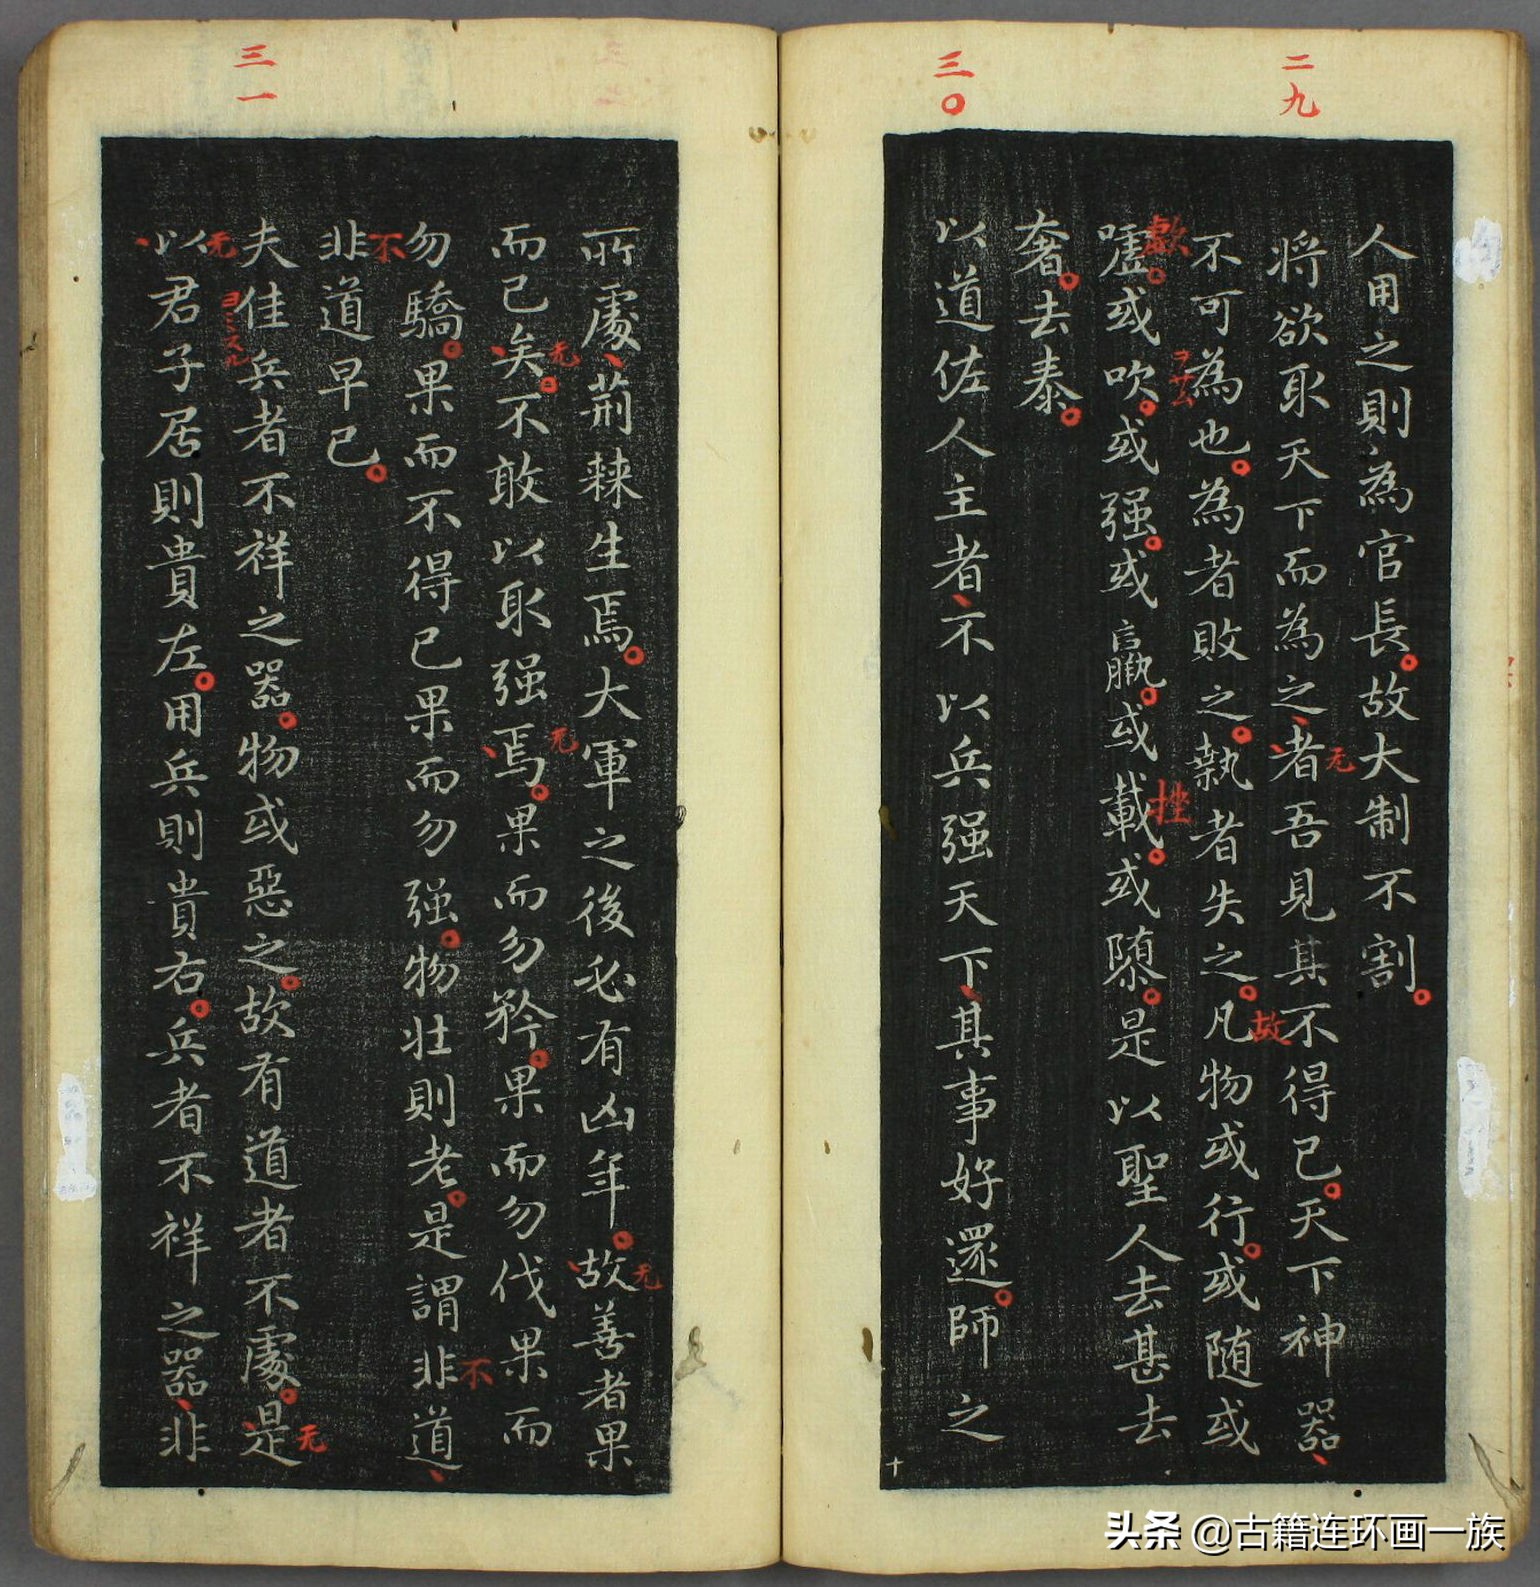 二九
人用之則為官長。故大制不割。
将欲取天下而為之者吾見其不得已。天下神器
无
不可為也。為者敗之。執者失之。凡物或行。或随或
故
嘘。或吹。或强。或羸。或載。或隳。是以聖人去甚去
歔
挫
奢。去泰。
三〇
以道佐人主者不以兵强天下其事好還。師之
十
所處荊棘生焉。大軍之後必有凶年。故善者果
无
而已矣。不敢以取强焉。果而勿矜。果而勿伐果而
无
无
勿驕。果而不得已果而勿强。物壯則老。是謂非道
不
非道早已。
不
三一
夫佳兵者不祥之器。物或惡之。故有道者不處。是
无
以君子居則貴左。用兵則貴右。兵者不祥之器非
无
头条 @古籍连环画一族